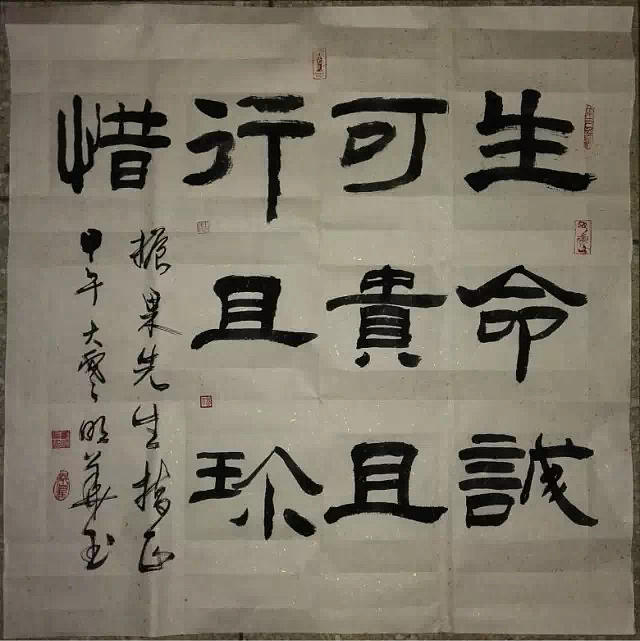 生命誠
可貴且
行且珎
惜
振果先生指正
甲午大雪明華書